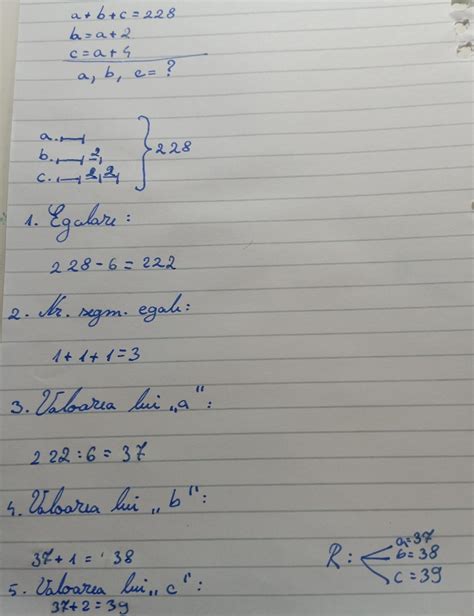 a+b+c=228
b=a+2
c=a+4
a, b, c=?
a.
b. 2
c. 2 2
}228
1. Egalare:
228-6=222
2. Nr. segm. egale:
1+1+1=3
3. Valoarea lui „a":
222:6=37
4. Valoarea lui „b":
37+1=38
5. Valoarea lui „c":
37+2=39
R: a=37
b=38
c=39